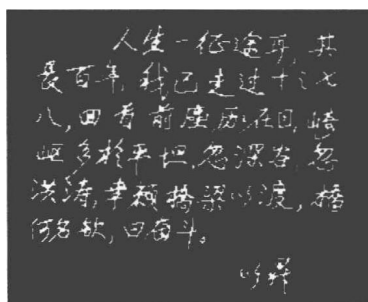 人生一征途耳,其
長百年,我已走过十之七
八,回首前塵,历历在目,崎
岖多於平坦,忽深谷,忽
洪涛,幸赖橋梁以渡,橋
何名欤,曰奋斗。
以昇